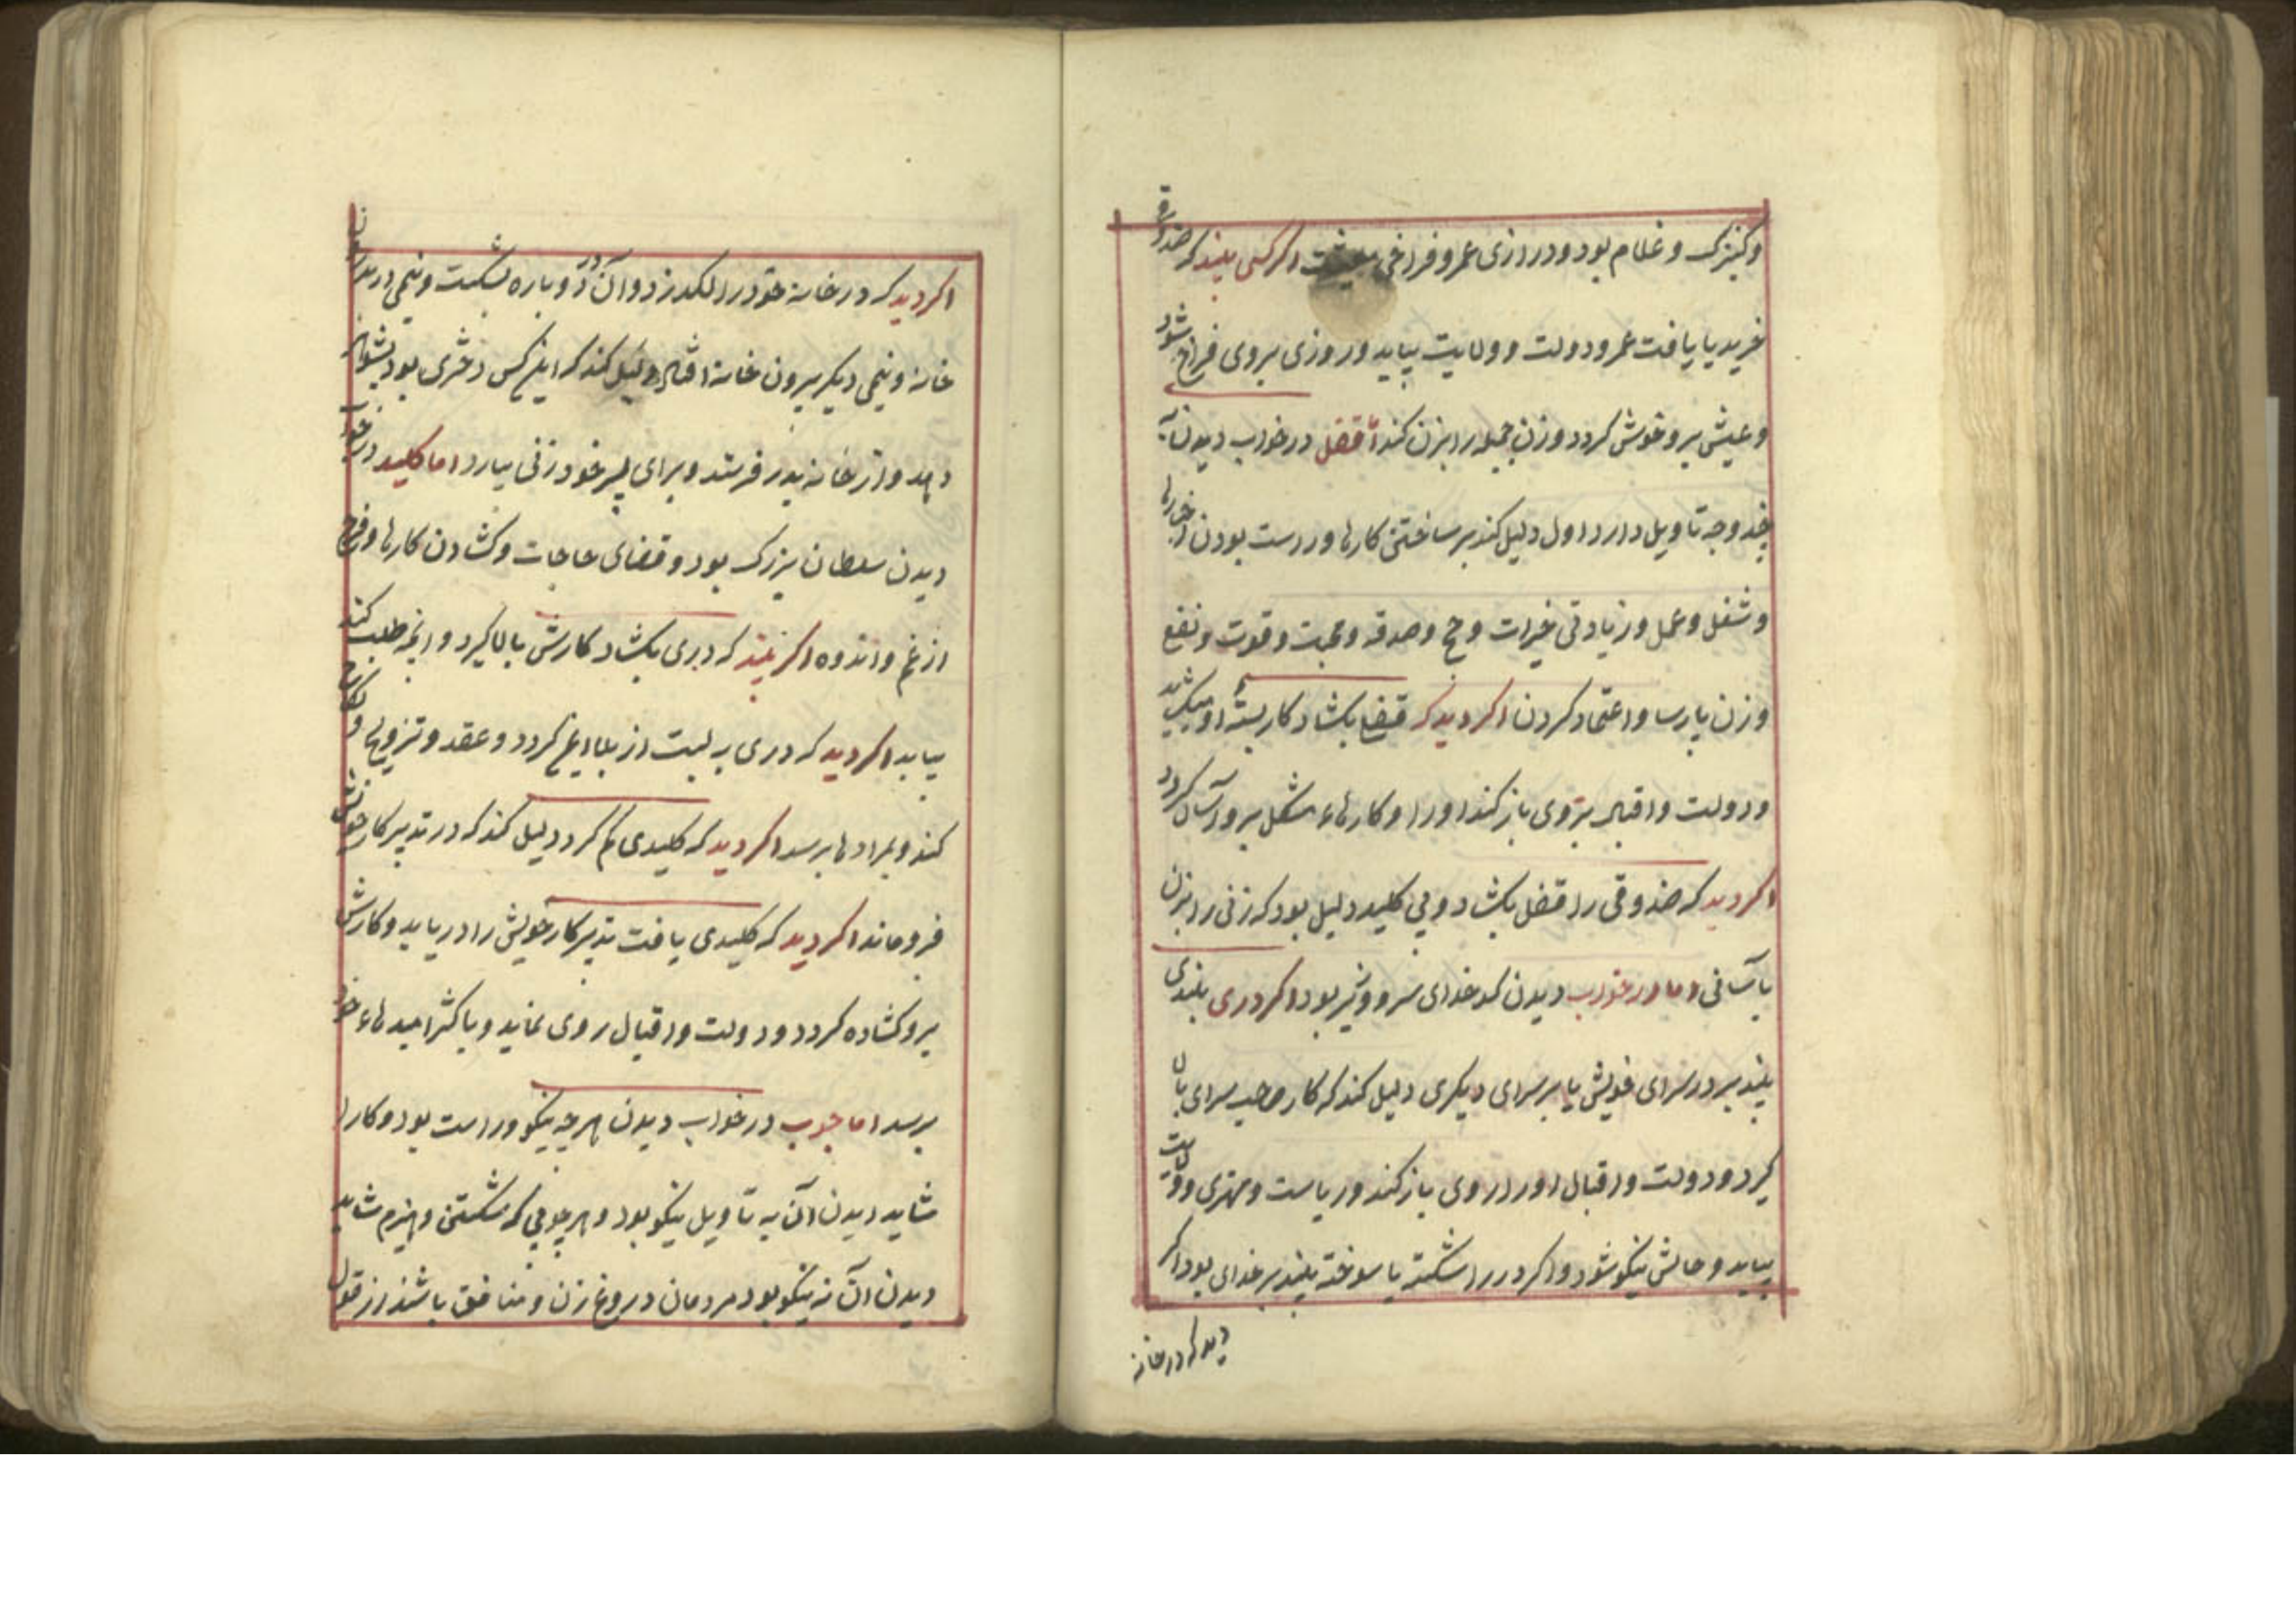 وکنیزک و غلام بود و درازی عمر و فراخی معیشت اکر کسی بیند که صندوق
خرید یا یافت عمر و دولت و ولایت بیابد و روزی بروی فراخ شود
و عیش برو خوش کردد و زن جمیله را بزن کند اما قفل در خواب دیدن
چند وجه تاویل دارد اول دلیل کند بر ساختن کارها و راست بودن
و شغل و عمل و زیادتی خیرات و حج و صدقه و محبت و قوت و نفع
و زن پارسا و اعتماد کردن اکر دید که قفل بکشاد کار بسته او
و دولت و اقبال بروی باز کند او را و کارهاء مشکل برو آسان کردد
اکر دید که صندوقی را قفل بکشاد و بی کلید دلیل بود که زنی را بزن
بآسانی اما در خواب دیدن کدخدای سرو بود اکر دری بلندی
بیند بر در سرای خویش یا بر سرای دیکری دلیل کند که کار صاحب سرای بالا
کیرد و دولت و اقبال او را روی باز کند و ریاست و مهتری و ولایت
بیابد و حالش نیکو شود و اکر در را شکسته یا سوخته بیند بر خدای بود اکر
دید که در خانه
اکر دید که در خانه خود را لکد زد و آن در دو پاره بشکست و نیمی در
خانه و نیمی دیکر بیرون خانه افتاد دلیل کند که اینکس دختری بود بشوهر
دهد و از خانه بدر فرستد و برای پسر خود زنی بیارد اما کلید در خواب
دیدن سلطان بزرک بود و قضای حاجات و کشادن کارها و فرج
از غم و اندوه اکر بیند که دری بکشاد کارش بالا کیرد و انچه طلب کند
بیابد اکر دید که دری به بست از بلا ایمن کردد و عقد و تزویج و نکاح
کند و بمرادها برسد اکر دید که کلیدی کم کرد دلیل کند که در تدبیر کار خویش
فروماند اکر دید که کلیدی یافت تدبیر کار خویش را دریابد و کارش
برو کشاده کردد و دولت و اقبال روی نماید و باکثر امیدهاء خود
برسد اما چوب در خواب دیدن هرچه نیکو و راست بود و کار را
شاید دیدن آن به تاویل نیکو بود و هر چوبی که شکستن و هیزم شاید
دیدن آن نه نیکو بود مردمان دروغ زن و منافق باشند از قول